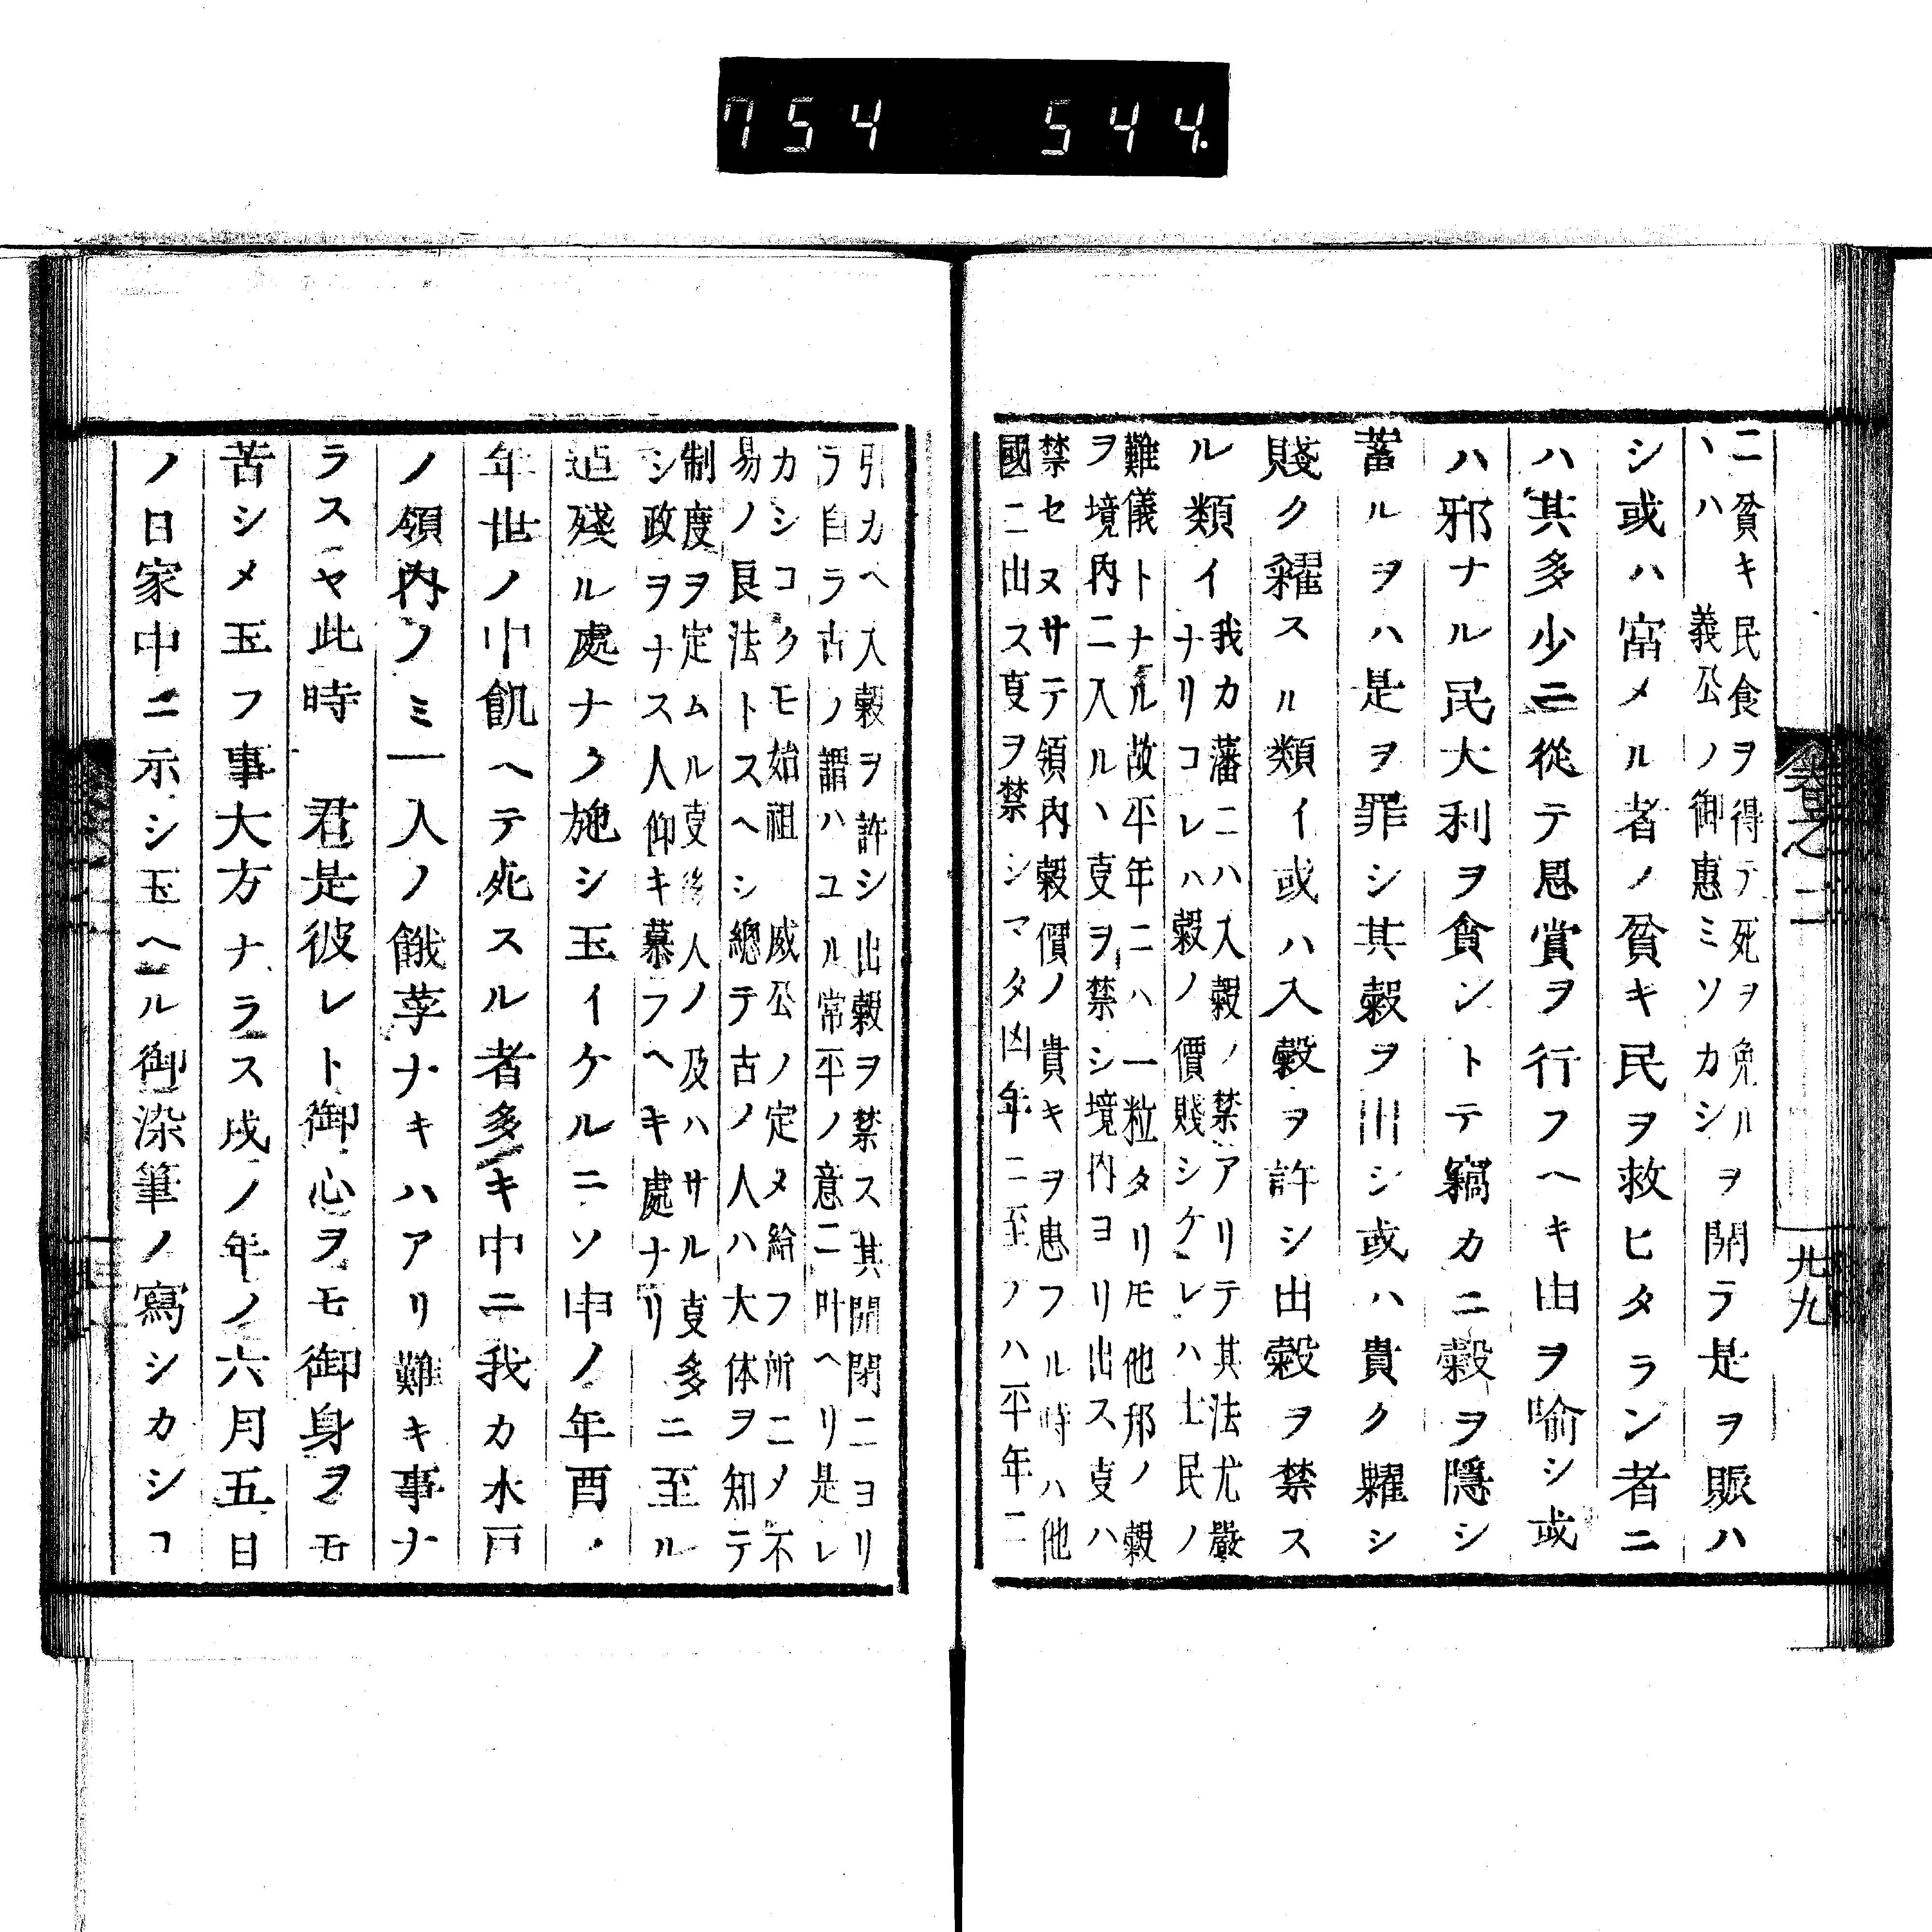 754 544.
二貧キ民食ヲ得テ死ヲ免ル
丶ハ 義公ノ御惠ミソカシ
ヲ開ラ是ヲ賑ハ
シ或ハ富メル者ノ貧キ民ヲ救ヒタラン者ニ
ハ其多少ニ從テ恩賞ヲ行フヘキ由ヲ喩シ或
ハ邪ナル民大利ヲ貪ントテ竊カニ穀ヲ隱シ
蓄ルヲハ是ヲ罪シ其穀ヲ出シ或ハ貴ク糶シ
賤ク糴スル類イ或ハ入穀ヲ許シ出穀ヲ禁ス
ル類イ
我カ藩ニハ入穀ノ禁アリテ其法尤嚴
ナリコレハ穀ノ價賤シケレハ士民ノ
難儀トナル故平年ニハ一粒タリモ他邦ノ穀
ヲ境内ニ入ル丶叓ヲ禁シ境内ヨリ出ス叓ハ
禁セヌサテ領内穀價ノ貴キヲ患フル時ハ他
國ニ出ス叓ヲ禁シマタ凶年ニ至ノハ平年ニ
卷之二
九九
引カヘ入穀ヲ許シ出穀ヲ禁ス其開閉ニヨリ
ラ自ラ古ノ謂ハユル常平ノ意ニ叶ヘリ是レ
カシコクモ始祖 威公ノ定メ給フ所ニメ不
易ノ良法トスヘシ總テ古ノ人ハ大体ヲ知テ
制度ヲ定ムル叓後人ノ及ハサル叓多
シ政ヲナス人仰キ慕フヘキ處ナリ
ニ至ル
迠殘ル處ナク施シ玉イケルニソ申ノ年酉ノ
年世ノ中飢ヘテ死スル者多キ中ニ我カ水戸
ノ領内ノミ一人ノ餓莩ナキハアリ難キ事ナ
ラスヤ此時 君是彼レト御心ヲモ御身ヲモ
苦シメ玉フ事大方ナラス戌ノ年ノ六月五日
ノ日家中ニ示シ玉ヘル御染筆ノ寫シカシコ